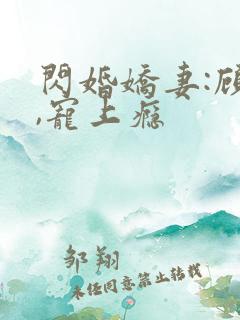 閃婚嬌妻:顾
,寵上癮
邹翔
未任同意禁止转载